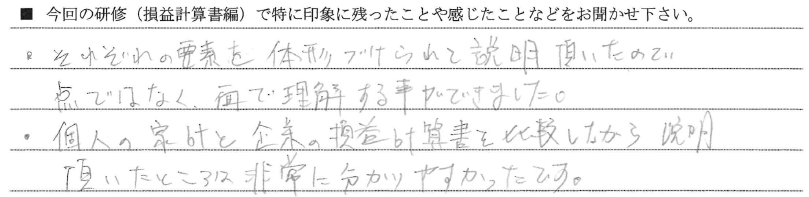 ■ 今回の研修（損益計算書編）で特に印象に残ったことや感じたことなどをお聞かせ下さい。
・それぞれの要素を体形づけられて説明頂いたので
点ではなく、面で理解する事ができました。
・個人の家計と企業の損益計算書を比較しながら説明
頂いたところは非常に分かりやすかったです。